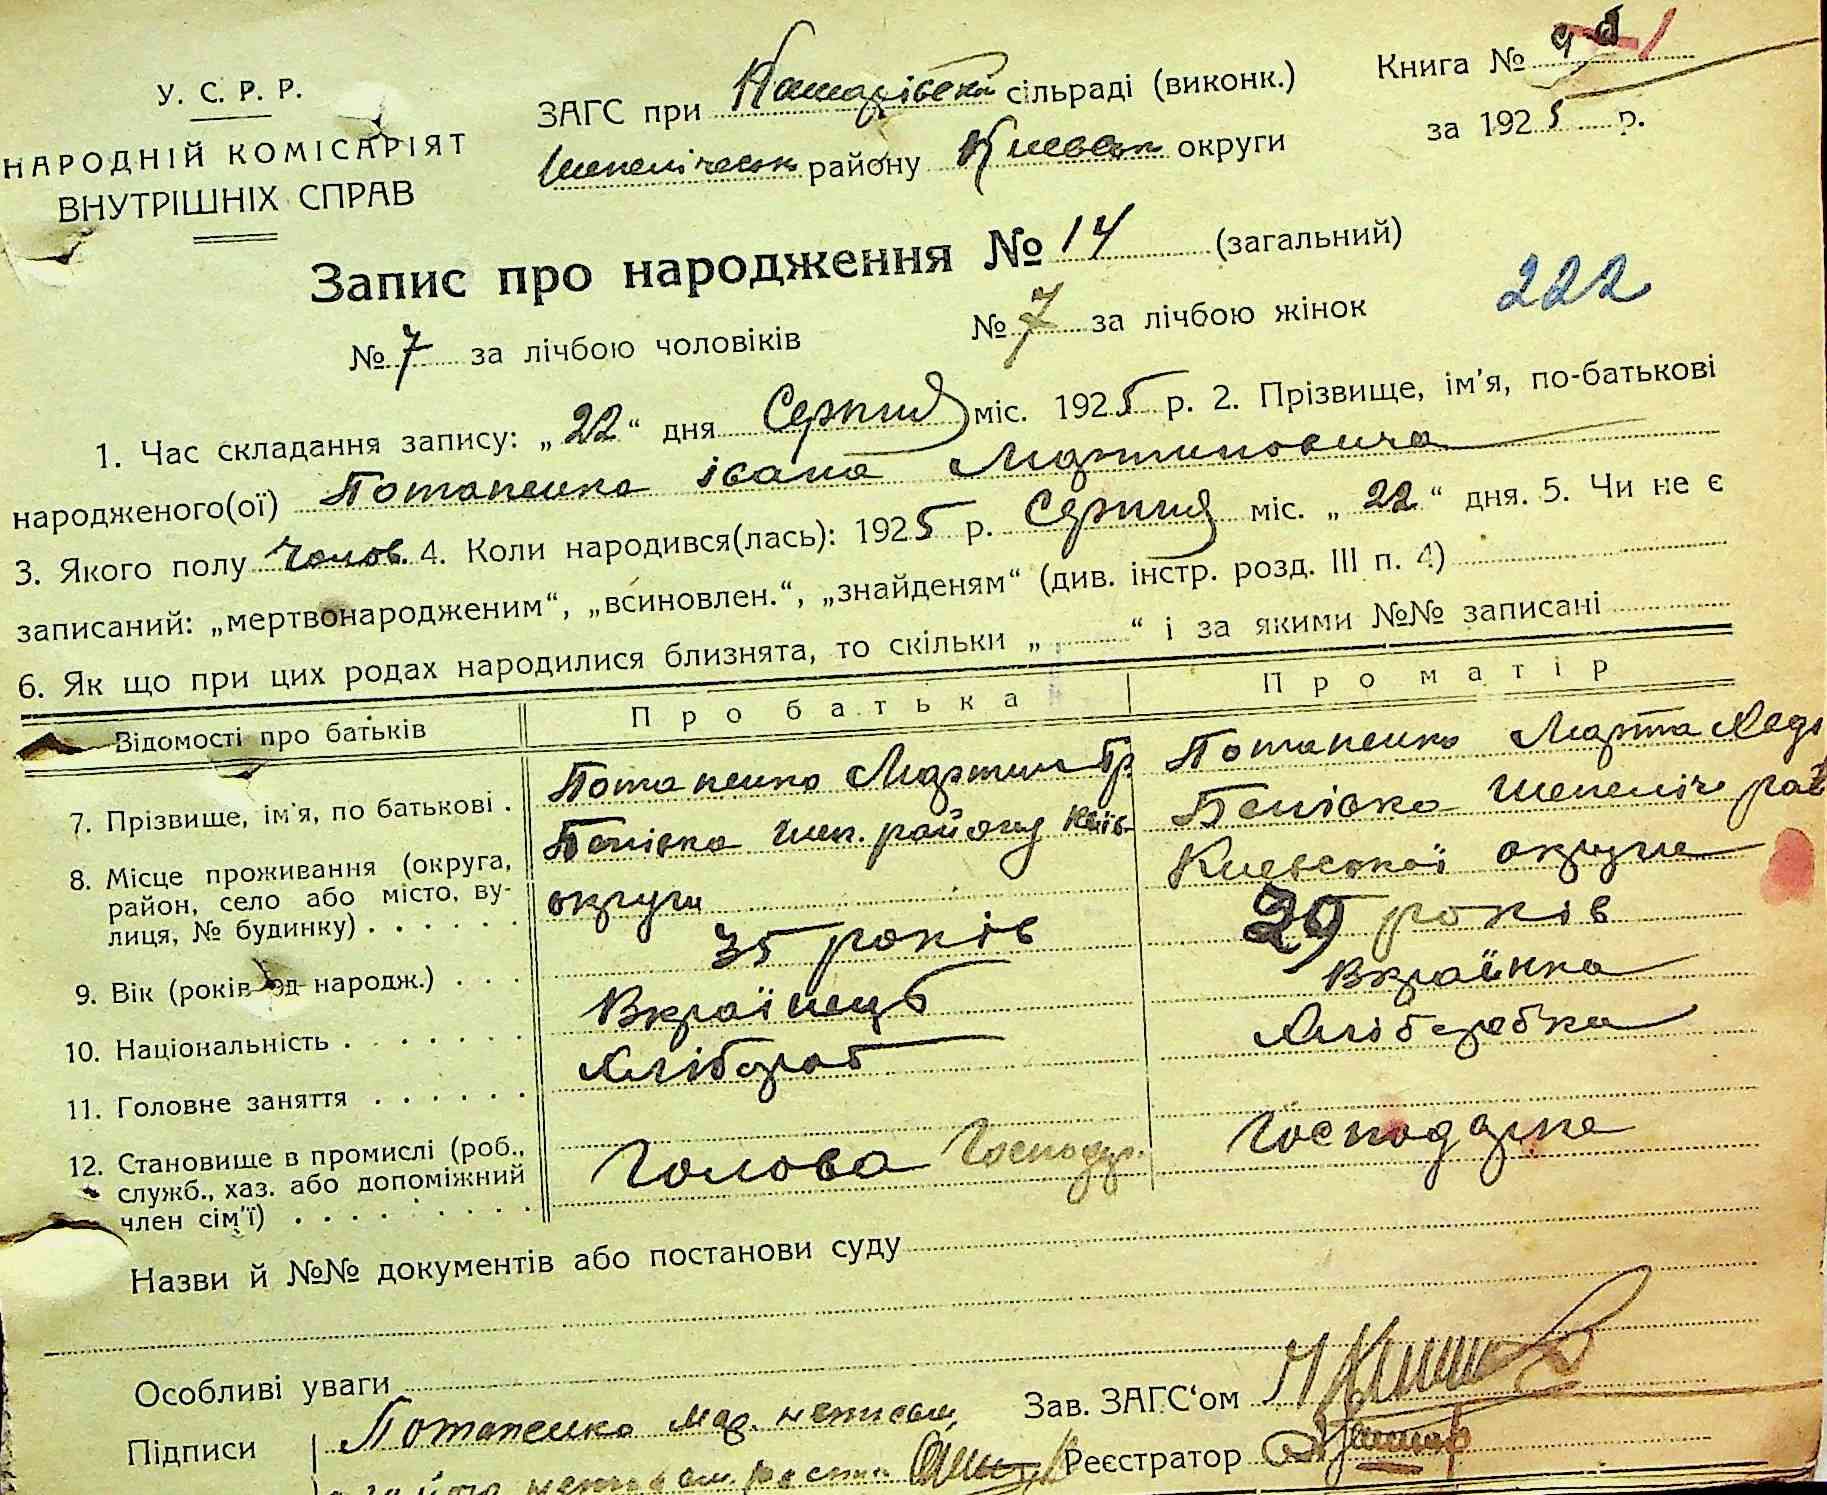 У. С. Р. Р.
НАРОДНІЙ КОМІСАРІЯТ
ВНУТРІШНІХ СПРАВ
ЗАГС при сільраді (виконк.)
району округи
Книга №
за 1925 р.
Запис про народження № 14 (загальний)
№ 7 за лічбою чоловіків № 7 за лічбою жінок
222
1. Час складання запису: „22“ дня Серпня міс. 1925 р. 2. Прізвище, ім'я, по-батькові
народженого(ої) Потапенко івана Мартиновича
3. Якого полу Чолов. 4. Коли народився(лась): 1925 р. Серпня міс. „22“ дня. 5. Чи не є
записаний: „мертвонародженим“, „всиновлен.“, „знайденям“ (див. інстр. розд. III п. 4)
6. Як що при цих родах народилися близнята, то скільки „ “ і за якими №№ записані
Відомості про батьків Про батька Про матір
7. Прізвище, ім'я, по батькові . Потапенко Мартин Гр Потапенко Марта
8. Місце проживання (округа, район, село або місто, вулиця, № будинку) . . . . . .
Бенівка Шеп. району Київ
округи
Бенівка Шепеліч
Киевської округи
9. Вік (років од народж.) . . . 35 років 29 років
10. Національність . . . . . . . Вкраїнець Вкраїнка
11. Головне заняття . . . . . . Хлібороб Хліборобка
12. Становище в промислі (роб., служб., хаз. або допоміжний член сім'ї) . . . . . . . . .
Голова Господар. Господарка
Назви й №№ документів або постанови суду
Особливі уваги
Підписи Потапенко Мар. неписьм.
Зав. ЗАГС‘ом
Реєстратор